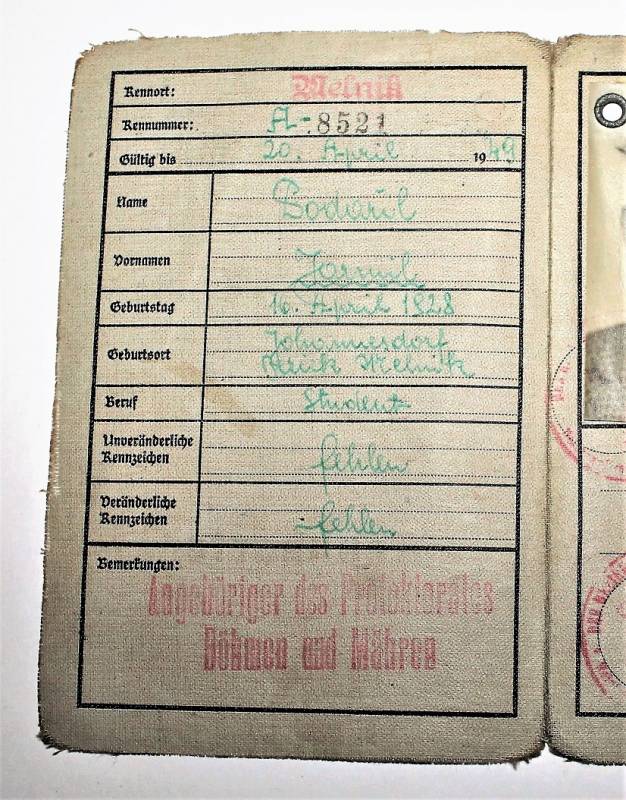 Kennort: Melnik
Kennummer: A-8521
Gültig bis 20. April 1949
Name
Vornamen Jarmil
Geburtstag 16. April 1928
Geburtsort Johannesdorf
Melnik
Beruf Student
Unveränderliche
Kennzeichen fehlen
Veränderliche
Kennzeichen fehlen
Bemerkungen:
Angehöriger des Protektorates
Böhmen und Mähren